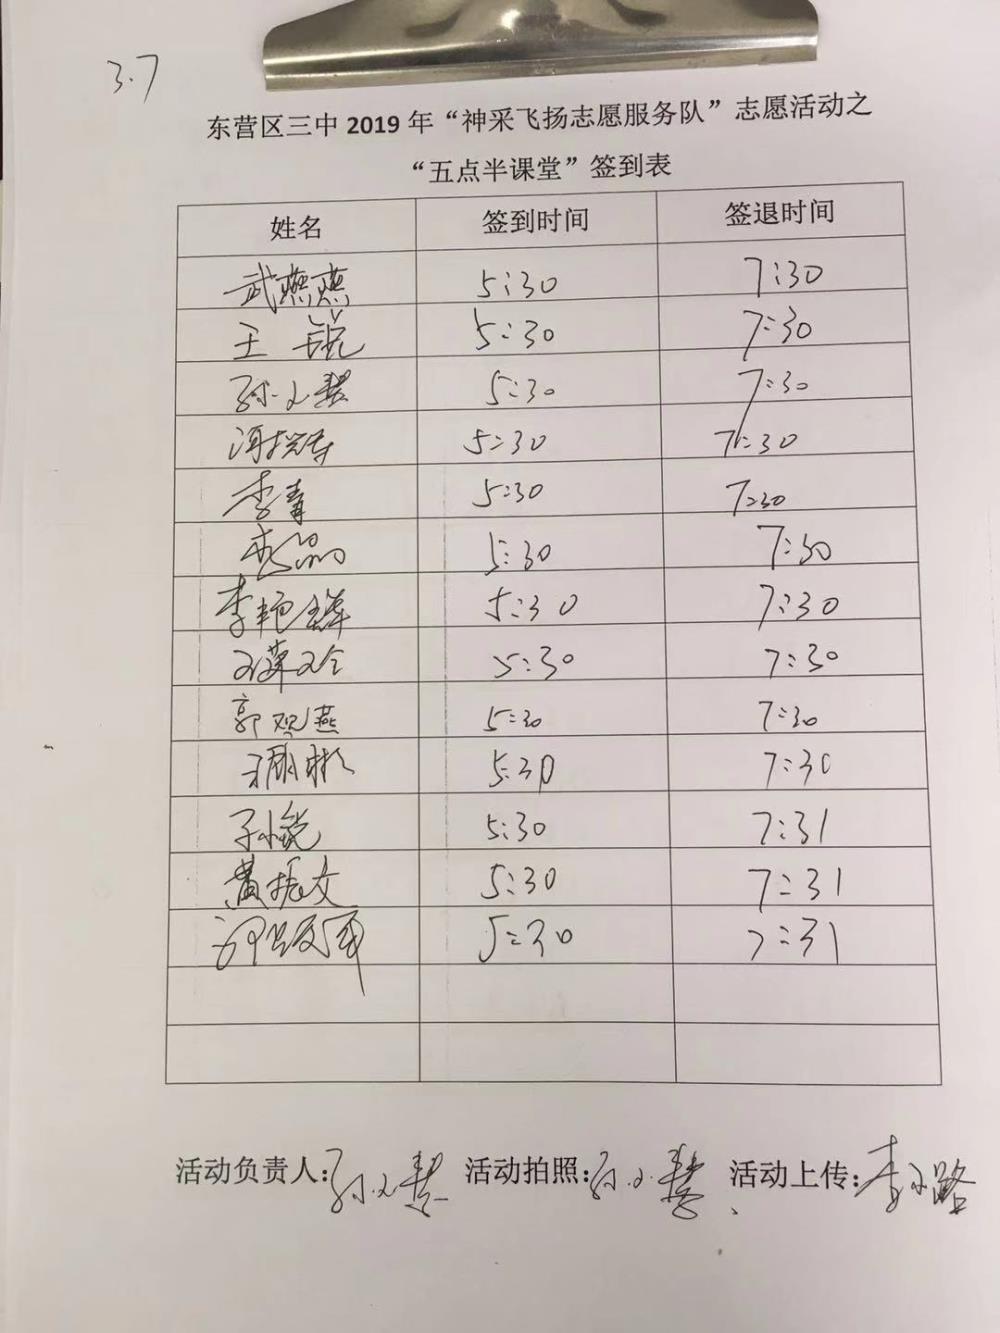 3.7
东营区三中2019年“神采飞扬志愿服务队”志愿活动之
“五点半课堂”签到表
姓名 签到时间 签退时间
武燕燕 5:30 7:30
王锐 5:30 7:30
孙小慧 5:30 7:30
5:30 7:30
李青 5:30 7:30
5:30 7:30
李艳 5:30 7:30
5:30 7:30
郭观燕 5:30 7:30
5:30 7:30
孙锐 5:30 7:31
黄振文 5:30 7:31
5:30 7:31
活动负责人:孙小慧 活动拍照:孙小慧 活动上传:李小路